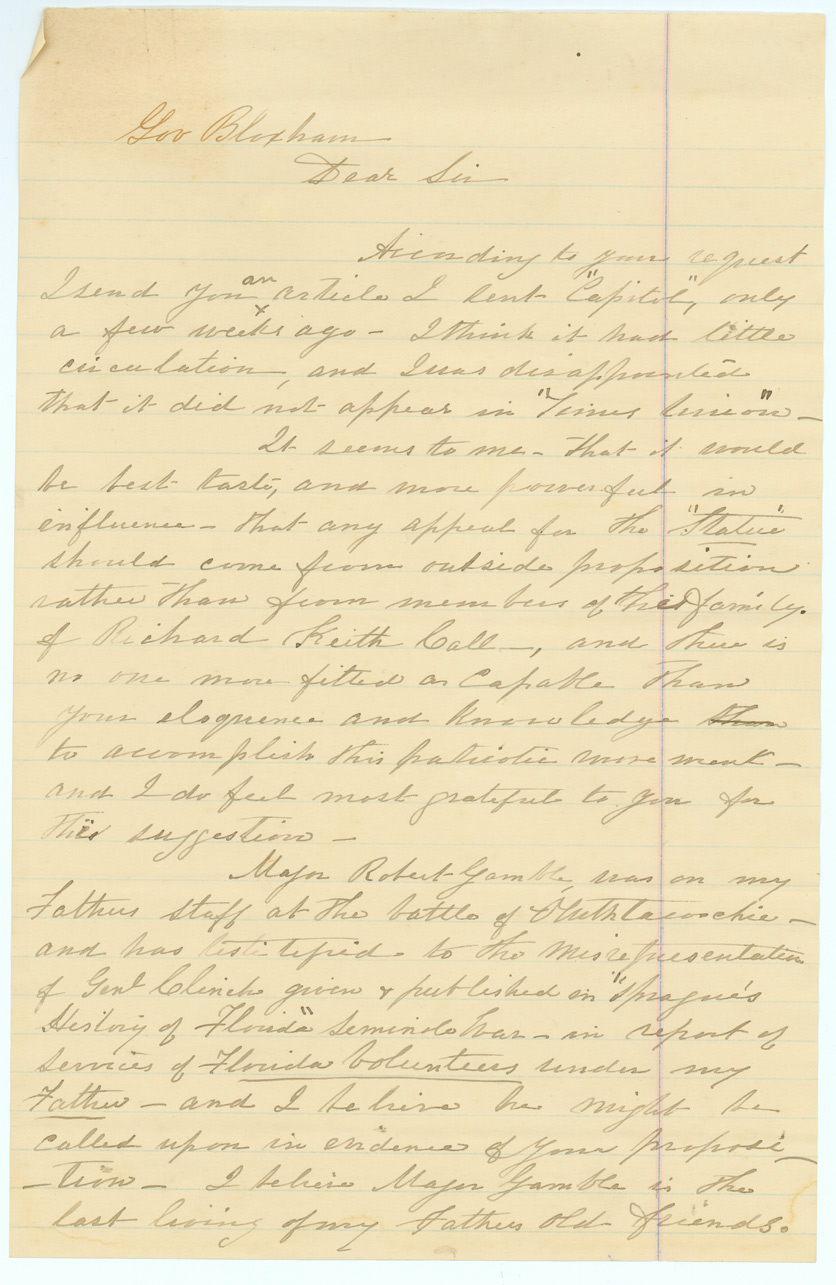 Gov Bloxham
Dear Sir
According to your request
I send you an article I sent "Capitol", only
a few weeks ago - I think it had little
circulation, and I was disappointed
that it did not appear in "Times Union" -
It seems to me - that it would
be best taste, and more powerful in
influence - that any appeal for the "Statue"
should come from outside proposition
rather than from members of the family.
of Richard Keith Call -, and there is
no one more fitted or capable than
your eloquence and knowledge than
to accomplish this patriotic movement -
and I do feel most grateful to you for
this suggestion -
Major Robert Gamble, was on my
Fathers staff at the battle of
and has testified to the misrepresentation
of Genl Clinch given & published in "Sprague's
History of Florida" Seminole War - in report of
services of Florida Volunteers under my
Father - and I believe he might be
called upon in evidence of your proposi-
-tion - I believe Major Gamble is the
last living of my Fathers old friends.